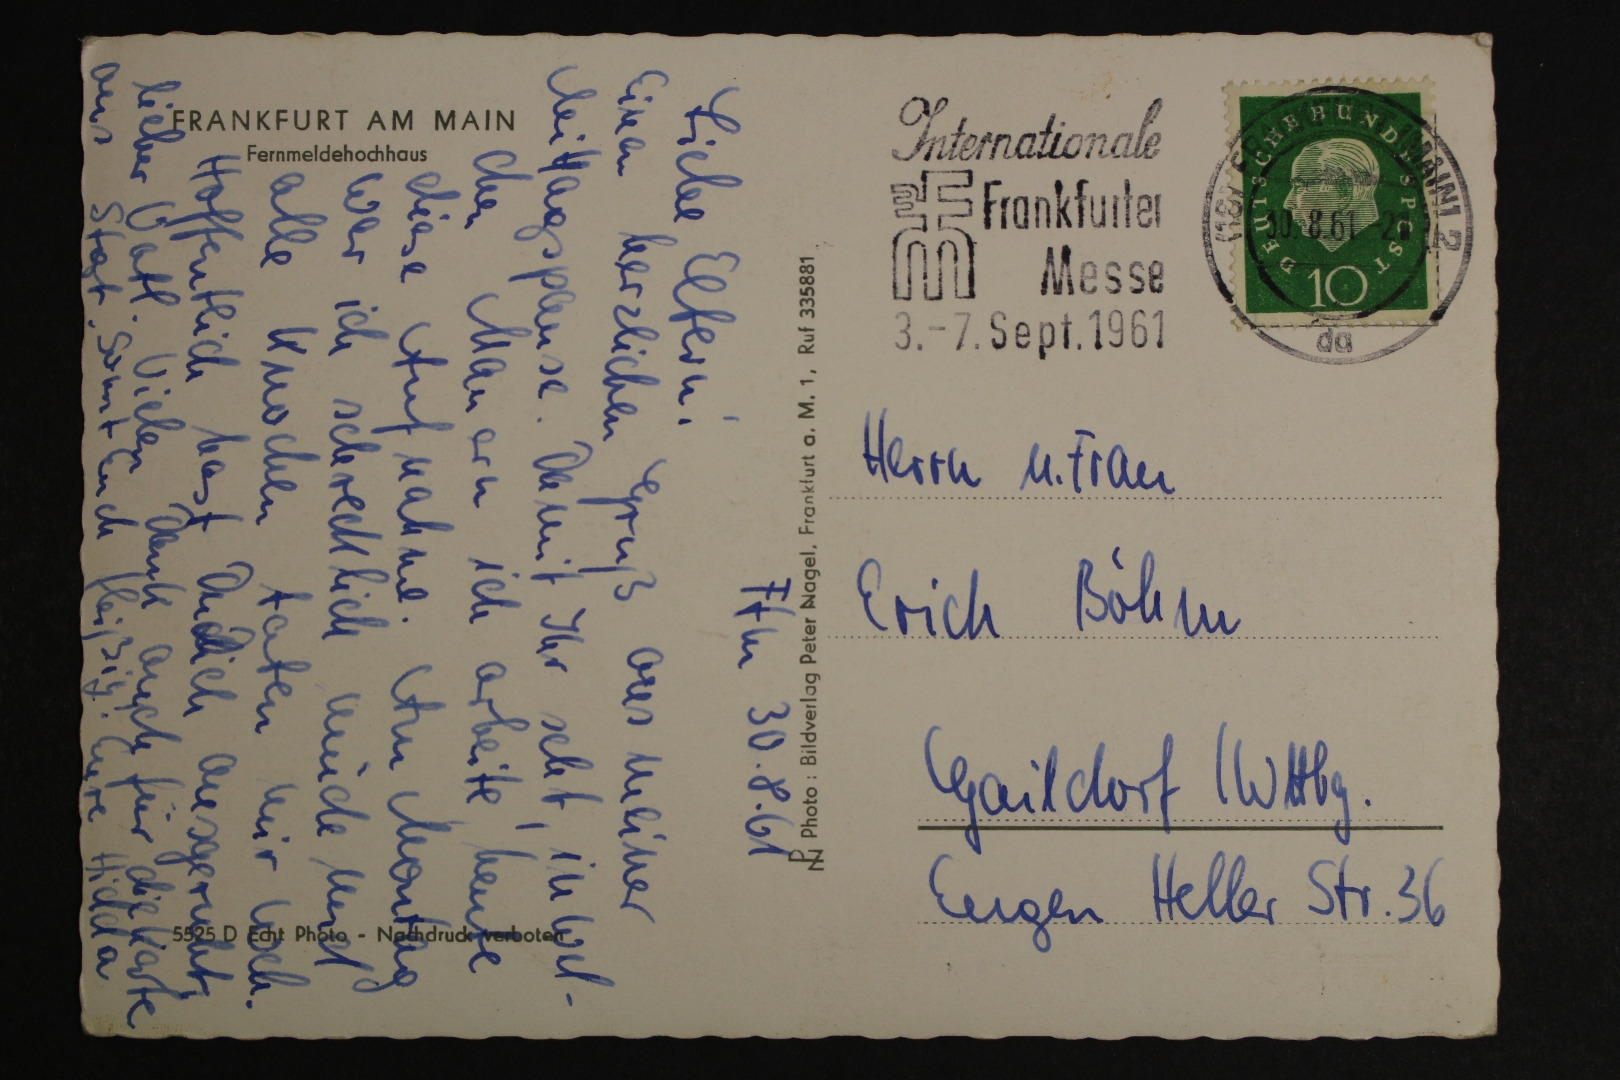 FRANKFURT AM MAIN
Fernmeldehochhaus
Ffm 30.8.61
Liebe Eltern!
Einen herzlichen Gruß aus meiner
Mittagspause. Damit Ihr seht, in wel-
chen Mauern ich arbeite, heute
diese Aufnahme. Am Montag
war ich schrecklich müde und
alle Knochen taten mir weh.
Hoffentlich hast Du dich ausgeruht,
lieber Vati. Vielen Dank auch für die Karte
aus Stgt. Sonst Euch fleißig! Eure Hilda
5525 D Echt Photo - Nachdruck verboten
PN Photo: Bildverlag Peter Nagel, Frankfurt a. M. 1, Ruf 335881
Internationale
Frankfurter
Messe
3.-7. Sept. 1961
DEUTSCHE BUNDESPOST
10
30.-8.61
da
Herrn u. Frau
Erich Böhm
Gaildorf / Wttbg.
Eugen Heller Str. 36